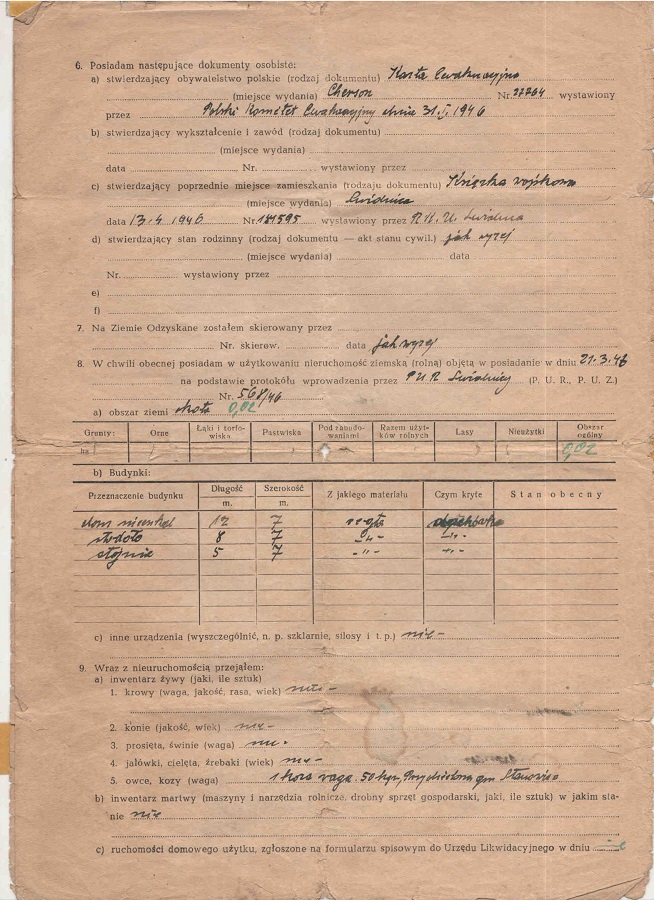 6. Posiadam następujące dokumenty osobiste:
a) stwierdzający obywatelstwo polskie (rodzaj dokumentu) Karta Ewakuacyjna
(miejsce wydania) Cherson Nr. 27764 wystawiony
przez Polski Komitet Ewakuacyjny dnia 31.I.1946
b) stwierdzający wykształcenie i zawód (rodzaj dokumentu)
(miejsce wydania)
data Nr. wystawiony przez
c) stwierdzający poprzednie miejsce zamieszkania (rodzaju dokumentu) Książka wojskowa
(miejsce wydania) Świdnica
data 13.4 1946 Nr. 184595 wystawiony przez R.K.U. Świdnica
d) stwierdzający stan rodzinny (rodzaj dokumentu — akt stanu cywil.) jak wyżej
(miejsce wydania) data
Nr. wystawiony przez
e)
f)
7. Na Ziemie Odzyskane zostałem skierowany przez
Nr. skierow. data jak wyżej
8. W chwili obecnej posiadam w użytkowaniu nieruchomość ziemską (rolną) objętą w posiadanie w dniu 21.3.46
na podstawie protokółu wprowadzenia przez P.U.R. Świdnicy (P. U. R., P. U. Z.)
Nr. 568/46
a) obszar ziemi 0,02
Grunty: Orne Łąki i torfowiska Pastwiska Pod zabudowaniami Razem użytków rolnych Lasy Nieużytki Obszar ogólny
ha 0,02
b) Budynki:
Przeznaczenie budynku Długość m. Szerokość m. Z jakiego materiału Czym kryte Stan obecny
dom mieszkal 12 7 cegła dachówka
stodoła 8 7 -„- -„-
stajnia 5 7 -„- -„-
c) inne urządzenia (wyszczególnić, n. p. szklarnie, silosy i t. p.) nie-
9. Wraz z nieruchomością przejąłem:
a) inwentarz żywy (jaki, ile sztuk)
1. krowy (waga, jakość, rasa, wiek) nie-
2. konie (jakość, wiek) nie-
3. prosięta, świnie (waga) nie-
4. jałówki, cielęta, źrebaki (wiek) nie-
5. owce, kozy (waga) 1 koza waga 50 kgr. gm.
b) inwentarz martwy (maszyny i narzędzia rolnicze, drobny sprzęt gospodarski, jaki, ile sztuk) w jakim sta-
nie nie
c) ruchomości domowego użytku, zgłoszone na formularzu spisowym do Urzędu Likwidacyjnego w dniu